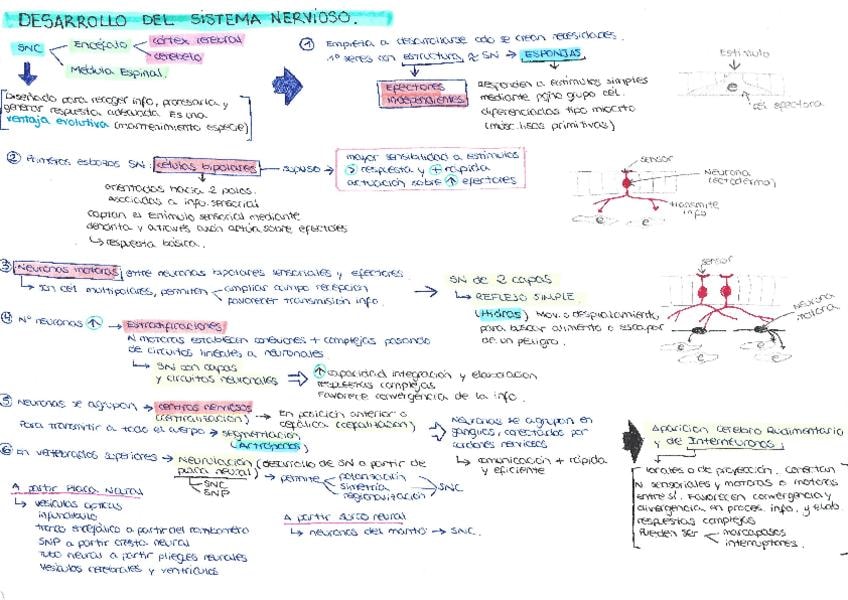 DESARROLLO DEL SISTEMA NERVIOSO.
SNC
Encéfalo
córtex cerebral
cerebelo
Médula Espinal.
Diseñado para recoger info, procesarla y
generar respuesta adecuada. Es una
ventaja evolutiva (mantenimiento especie)
① Empieza a desarrollarse cdo se crean necesidades.
1os seres con estructura ≈ SN → ESPONJAS
Efectores
independientes
Responden a estímulos simples
mediante pqño grupo cél.
diferenciadas tipo miocito
(músc. lisas primitivas)
Estímulo
cél efectora
e
② Primeros esbozos SN: células bipolares → supuso →
mayor sensibilidad a estímulos
> respuesta y + rápida
actuación sobre ↑ efectores
orientadas hacia 2 polos.
asociadas a info. sensorial
captan el estímulo sensorial mediante
dendrita y a través axón actúa sobre efectores
↳ respuesta básica.
sensor
Neurona
(ectodermo)
transmite
info
e e
③ Neuronas motoras, entre neuronas bipolares sensoriales y efectores.
↳ son cél multipolares, permiten
ampliar campo recepción
favorecer transmisión info.
→ SN de 2 capas
↳ REFLEJO SIMPLE.
(Hidras) Mov. o desplazamiento
para buscar alimento o escapar
de un peligro.
sensor
Neurona
motora
e e
e e
④ Nº neuronas ↑ → Estratificaciones
N motoras establecen conexiones + complejas pasando
de circuitos lineales a neuronales
↳ SN con capas
y circuitos neuronales
⇒ ↑ capacidad integración y elaboración
respuestas complejas
Favorece convergencia de la info.
⑤ Neuronas se agrupan → centros nerviosos
(centralización)
→ En posición anterior o
cefálica (cefalización)
Para transmitir a todo el cuerpo → segmentación
(Artrópodos)
Neuronas se agrupan en
ganglios, conectados por
cordones nerviosos
↳ comunicación + rápida
y eficiente
Aparición cerebro Rudimentario
y de Interneuronas.
Locales o de proyección. Conectan
N sensoriales y motoras o motoras
entre sí. Favorecen convergencia y
divergencia en proces. info. y elab.
respuestas complejas
Pueden ser
marcapasos
interruptores.
⑥ En vertebrados superiores → Neurulación (desarrollo de SN a partir de
placa neural)
SNC
SNP
→ permite
polarización
simetría
regionalización
SNC
A partir Placa Neural
↳ vesículas ópticas
infundíbulo
tronco encefálico a partir del rombómero
SNP a partir cresta neural
Tubo neural a partir pliegues neurales
Vesículas cerebrales y ventrículos
A partir surco neural
↳ neuronas del manto → SNC.